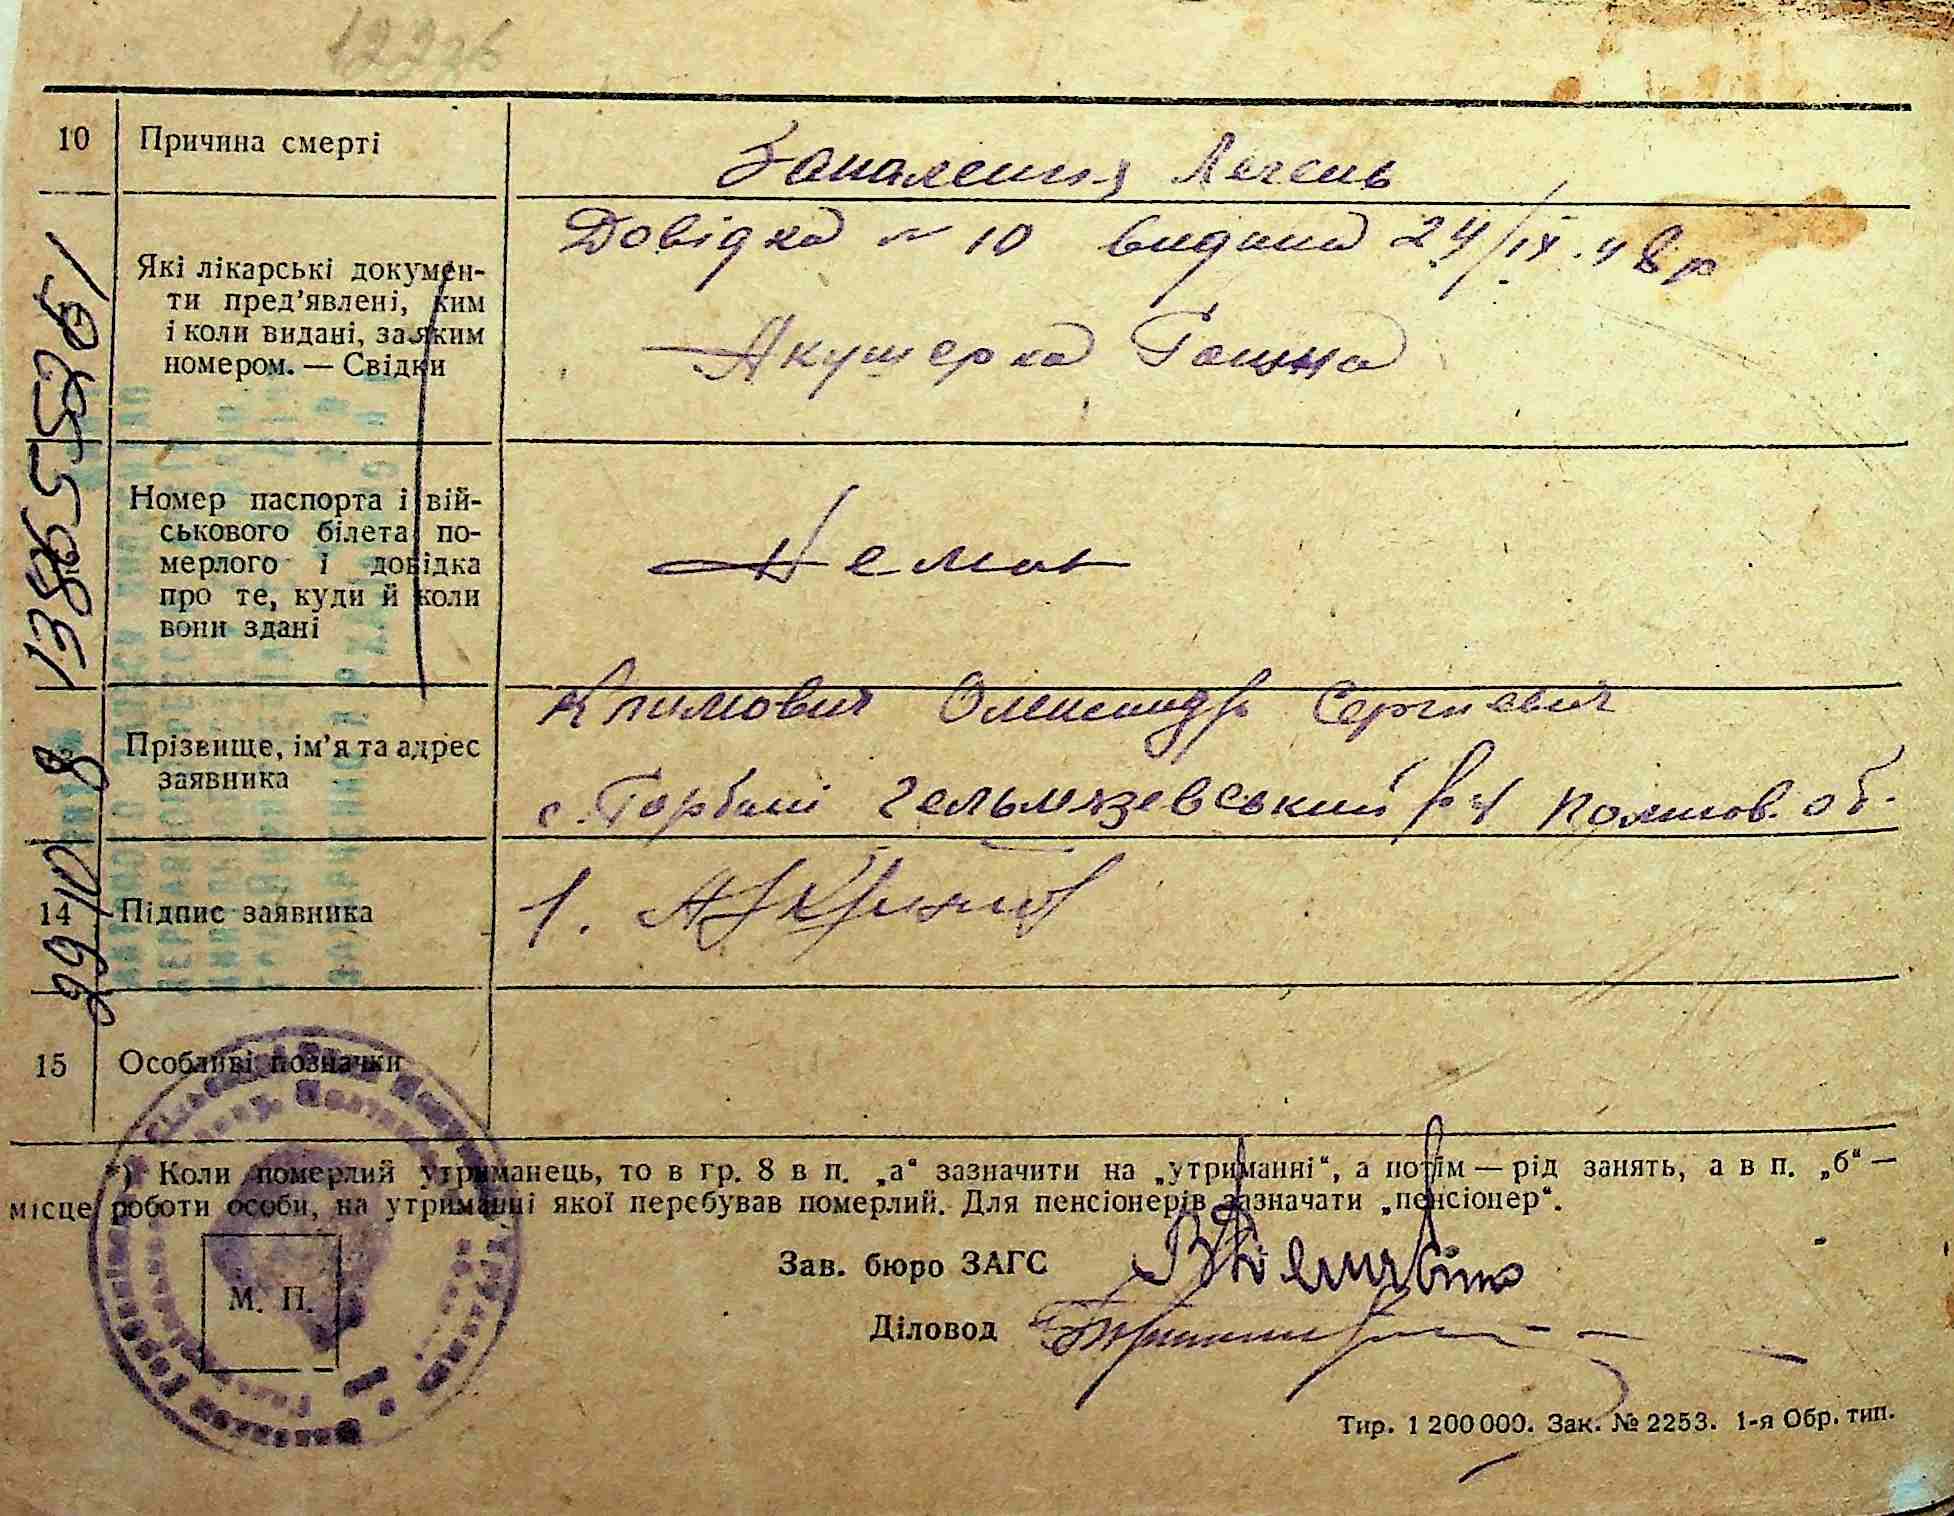 10 Причина смерті
Запалення Легень
Які лікарські докумен-
ти пред’явлені, ким
і коли видані, за яким
номером. — Свідки
Довідка № 10 видана 24/IX.48 р
Акушерка
Номер паспорта і вій-
ськового білета по-
мерлого і довідка
про те, куди й коли
вони здані
Немає
Прізвище, ім’я та адрес
заявника
Климович Олександр Сергиевич
с. Горбані Гельмязевський р-н Полтов. об.
14 Підпис заявника
1.
15 Особливі позначки
*) Коли померлий утриманець, то в гр. 8 в п. „а“ зазначити на „утриманні“, а потім — рід занять, а в п. „б“ —
місце роботи особи, на утриманні якої перебував померлий. Для пенсіонерів зазначати „пенсіонер“.
М. П.
Зав. бюро ЗАГС
Діловод
Тир. 1 200 000. Зак. № 2253. 1-я Обр. тип.